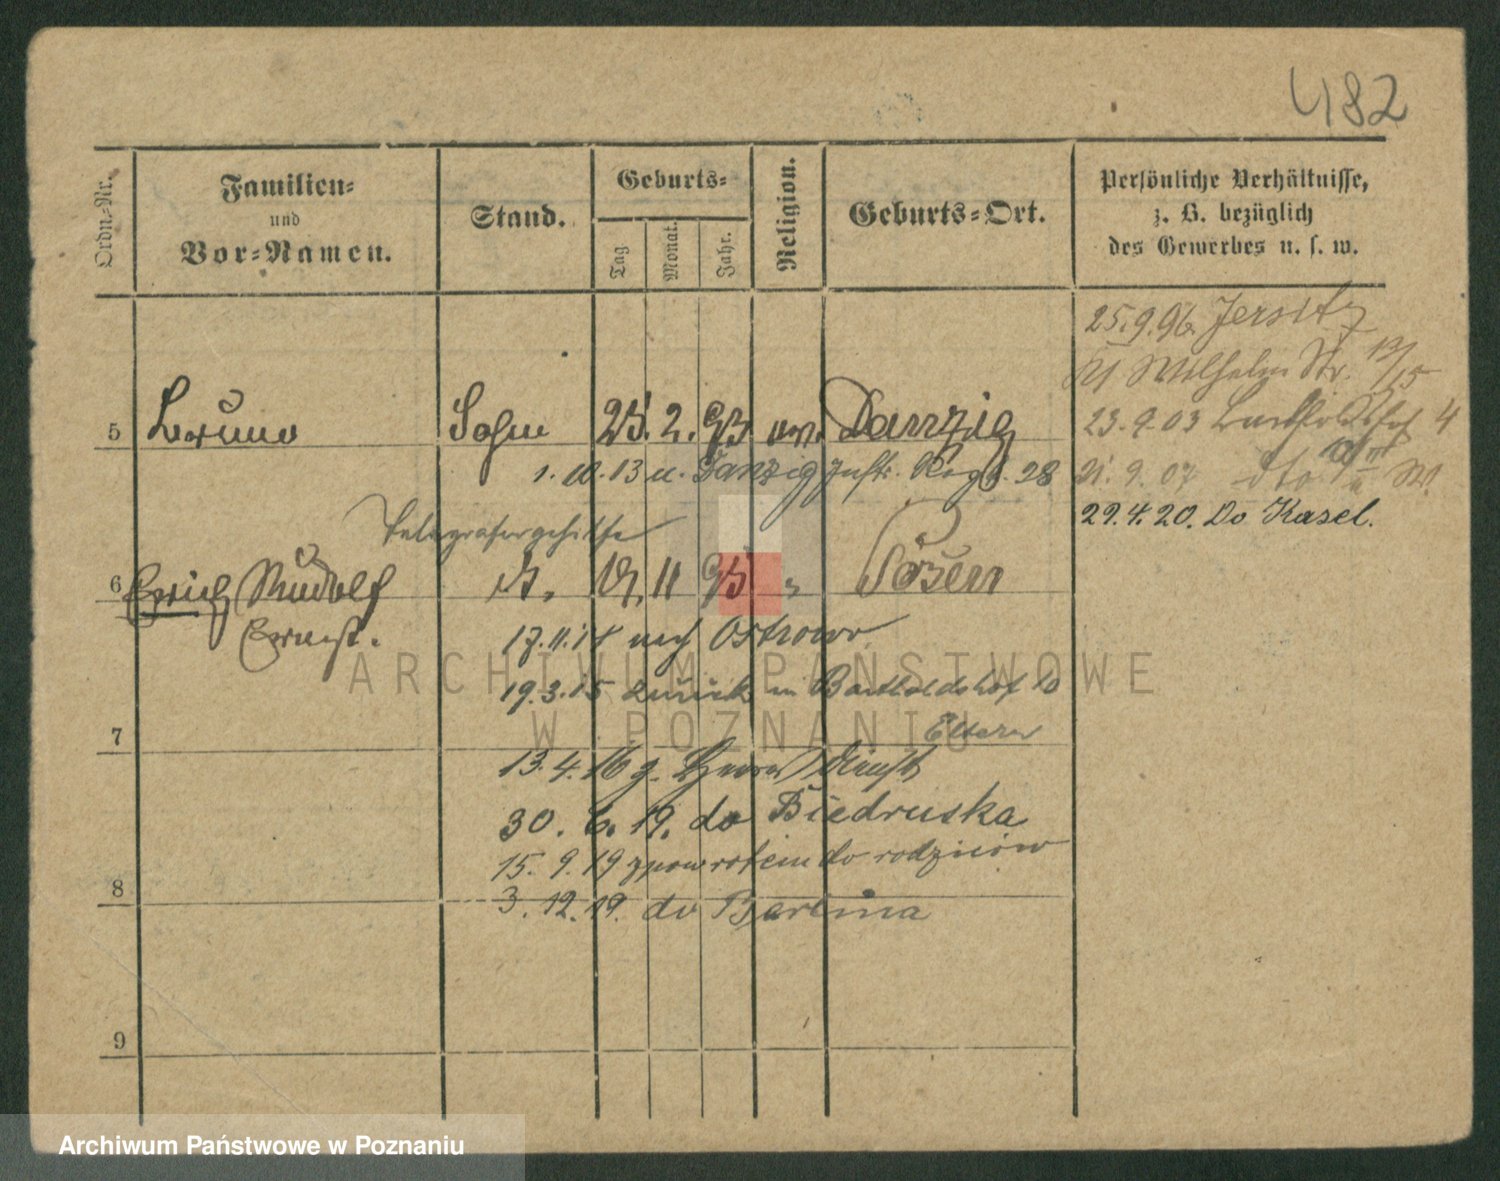 482
Ordn.-Nr.
Familien-
und
Vor-Namen.
Stand.
Geburts-
Tag
Monat.
Jahr.
Religion.
Geburts-Ort.
Persönliche Verhältnisse,
z. B. bezüglich
des Gewerbes u. s. w.
25.9.96. Jersitz
Wilhelm Str.
23.9.03 4
9.07 dto
29.4.20. Do Kasel.
5 Bruno Sohn 25. 2. 93 ev. Danzig
1. 10. 13 n. Danzig Inftr. Regt. 28
Telegrafengehilfe
6 Erich Rudolf 11 95 " Posen
Ernst.
17.11.14 nach Ostrowo
19.3.15 zurück in Bartholdshof
Eltern
7
13.4.16 z.
30. 6. 19. do Biedruska
15. 9. 19 z powrotem do rodziców
8
3. 12. 19. do Berlina
9
ARCHIWUM PAŃSTWOWE
W POZNANIU
Archiwum Państwowe w Poznaniu